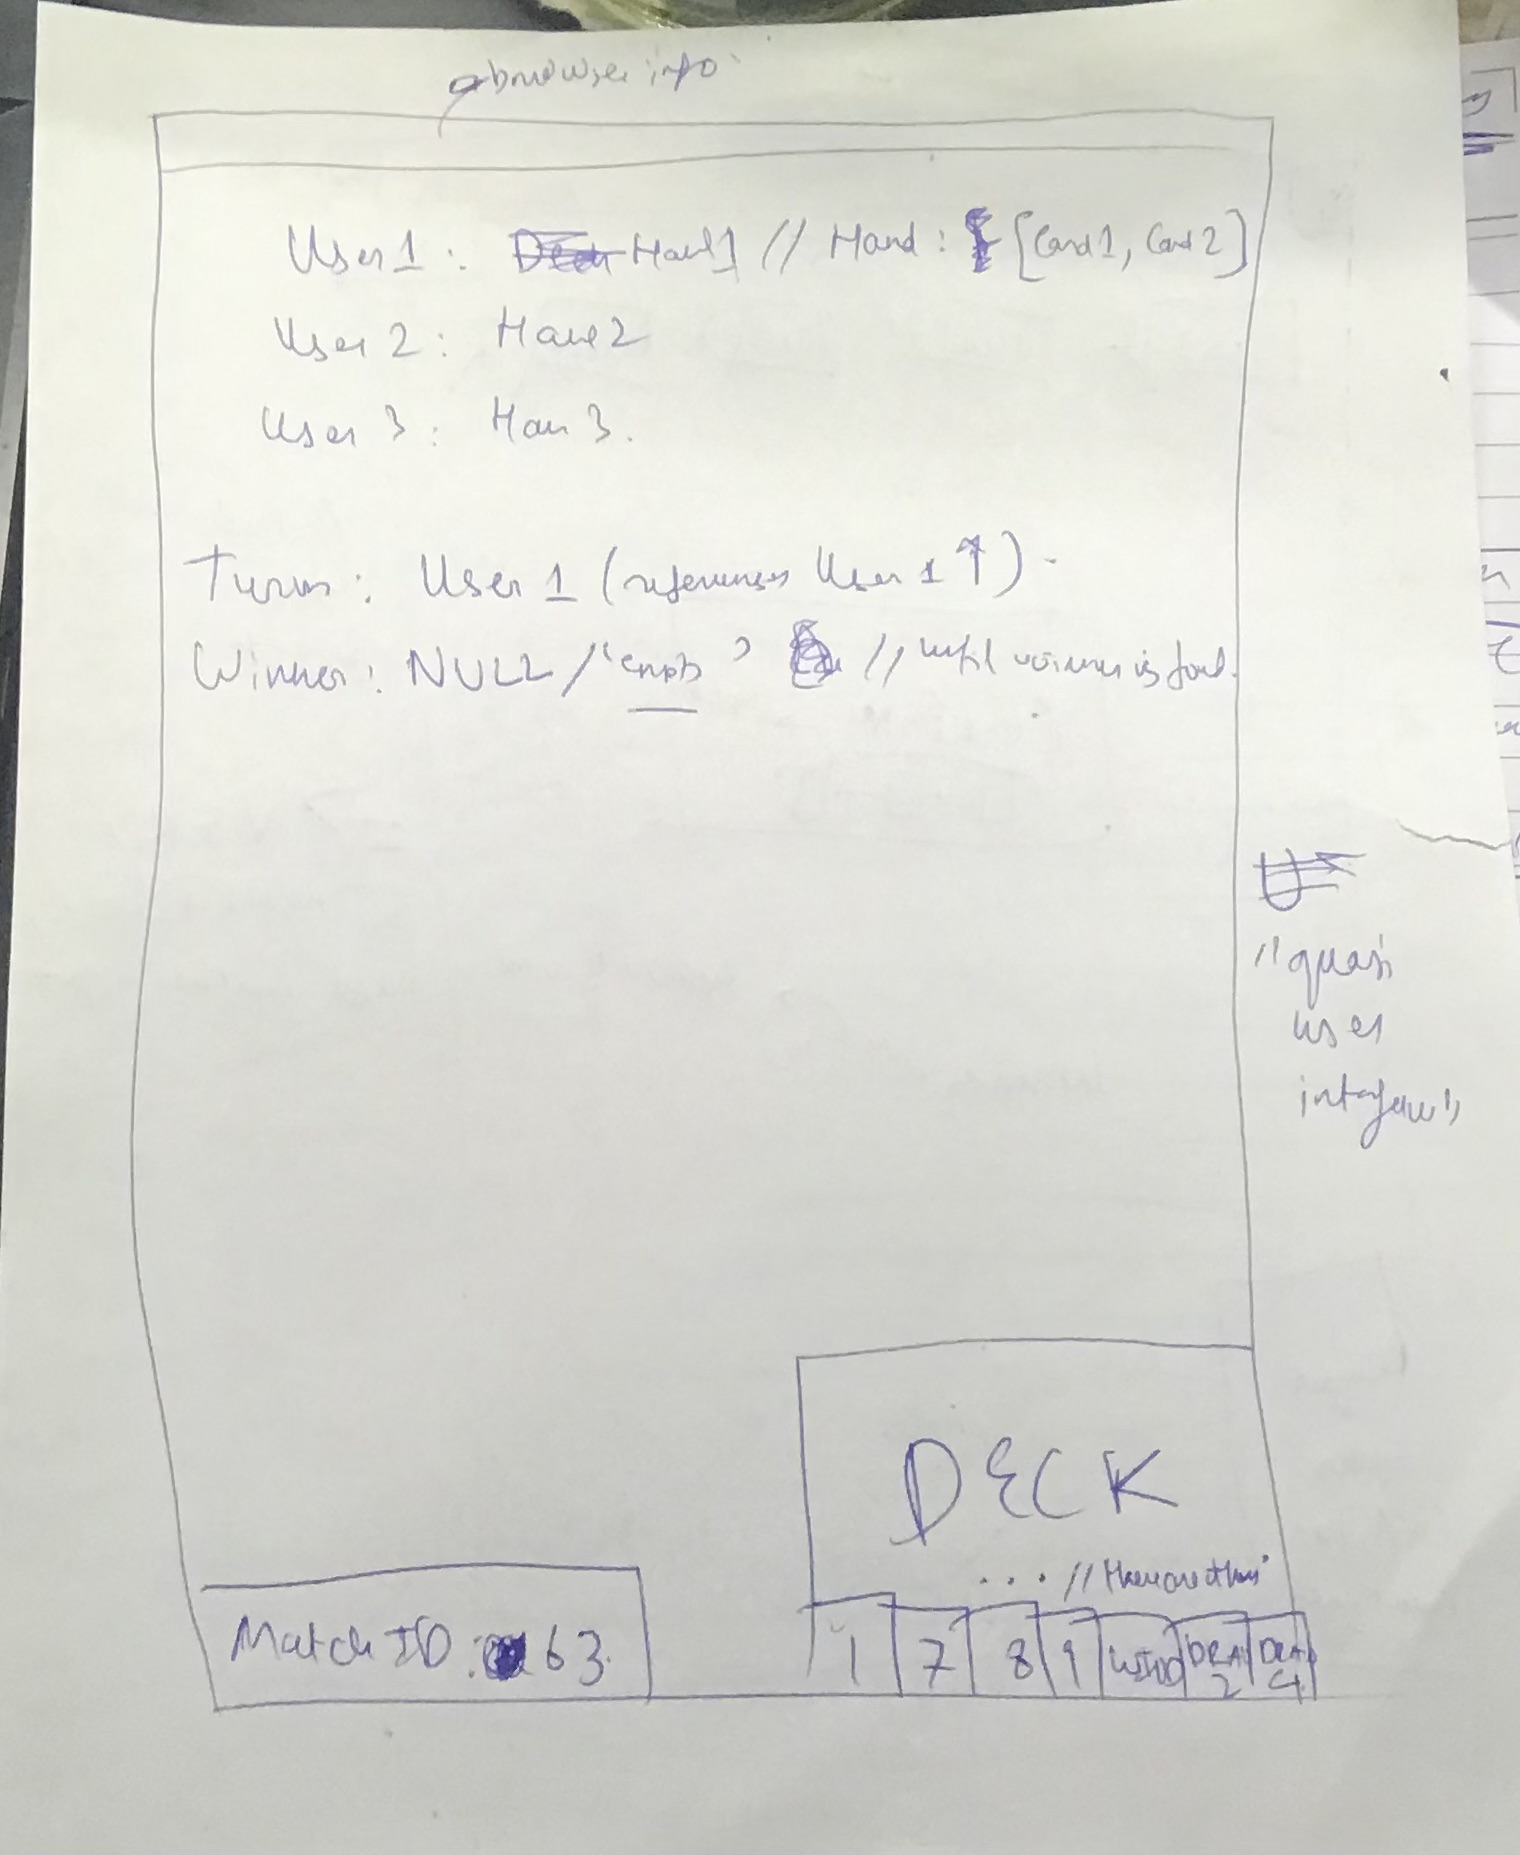 browser info
User 1 : Hand 1 // Hand : [Card 1, Card 2]
User 2 : Hand 2
User 3 : Han 3.
Turn : User 1 (references User 1 ↑) -
Winner : NULL / 'empty' // until winner is found.
// quasi
user
interface"
DECK
... //
Match ID : 63.
1 7 8 9 WILD DRAW 2 DRAW 4